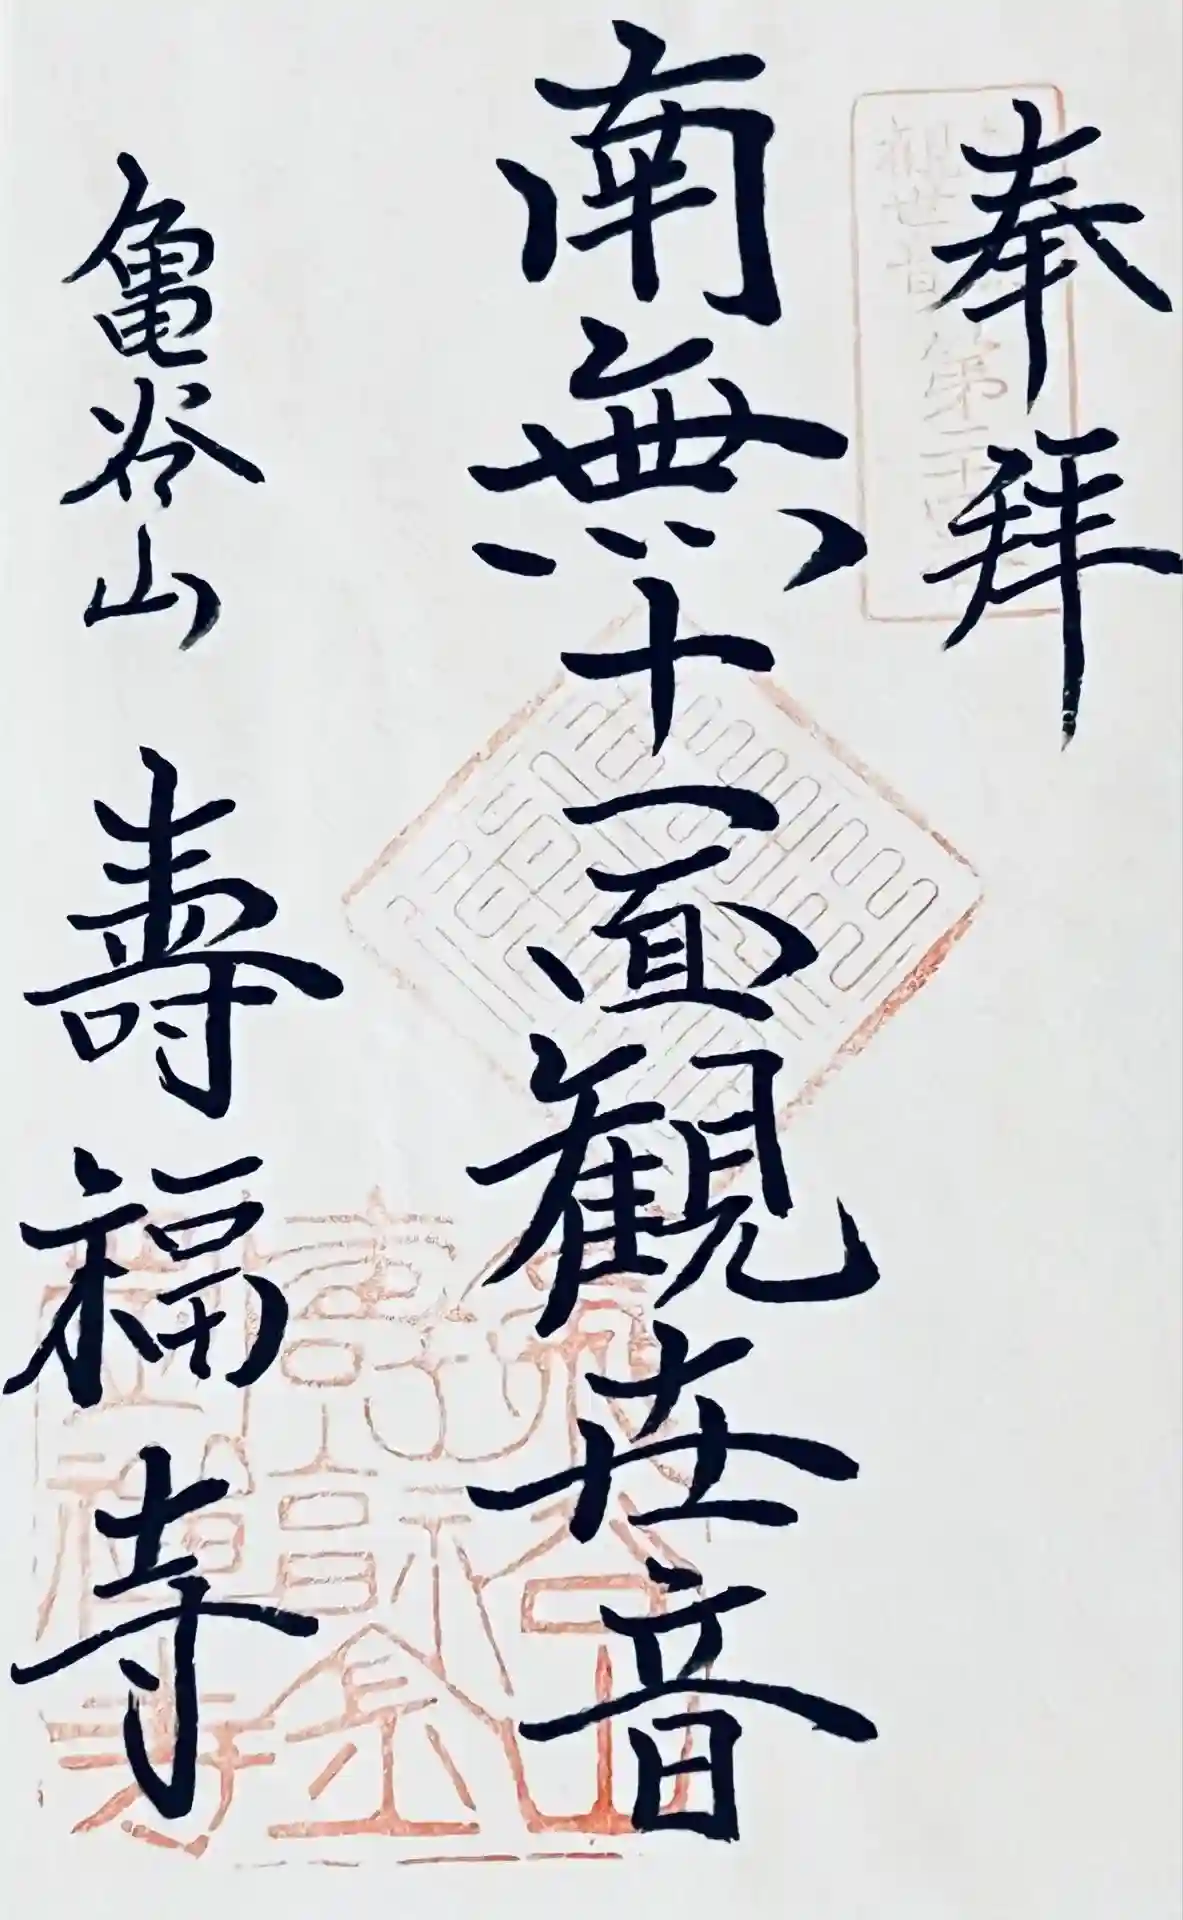 奉拝
南無十一面観世音
亀谷山 壽福寺